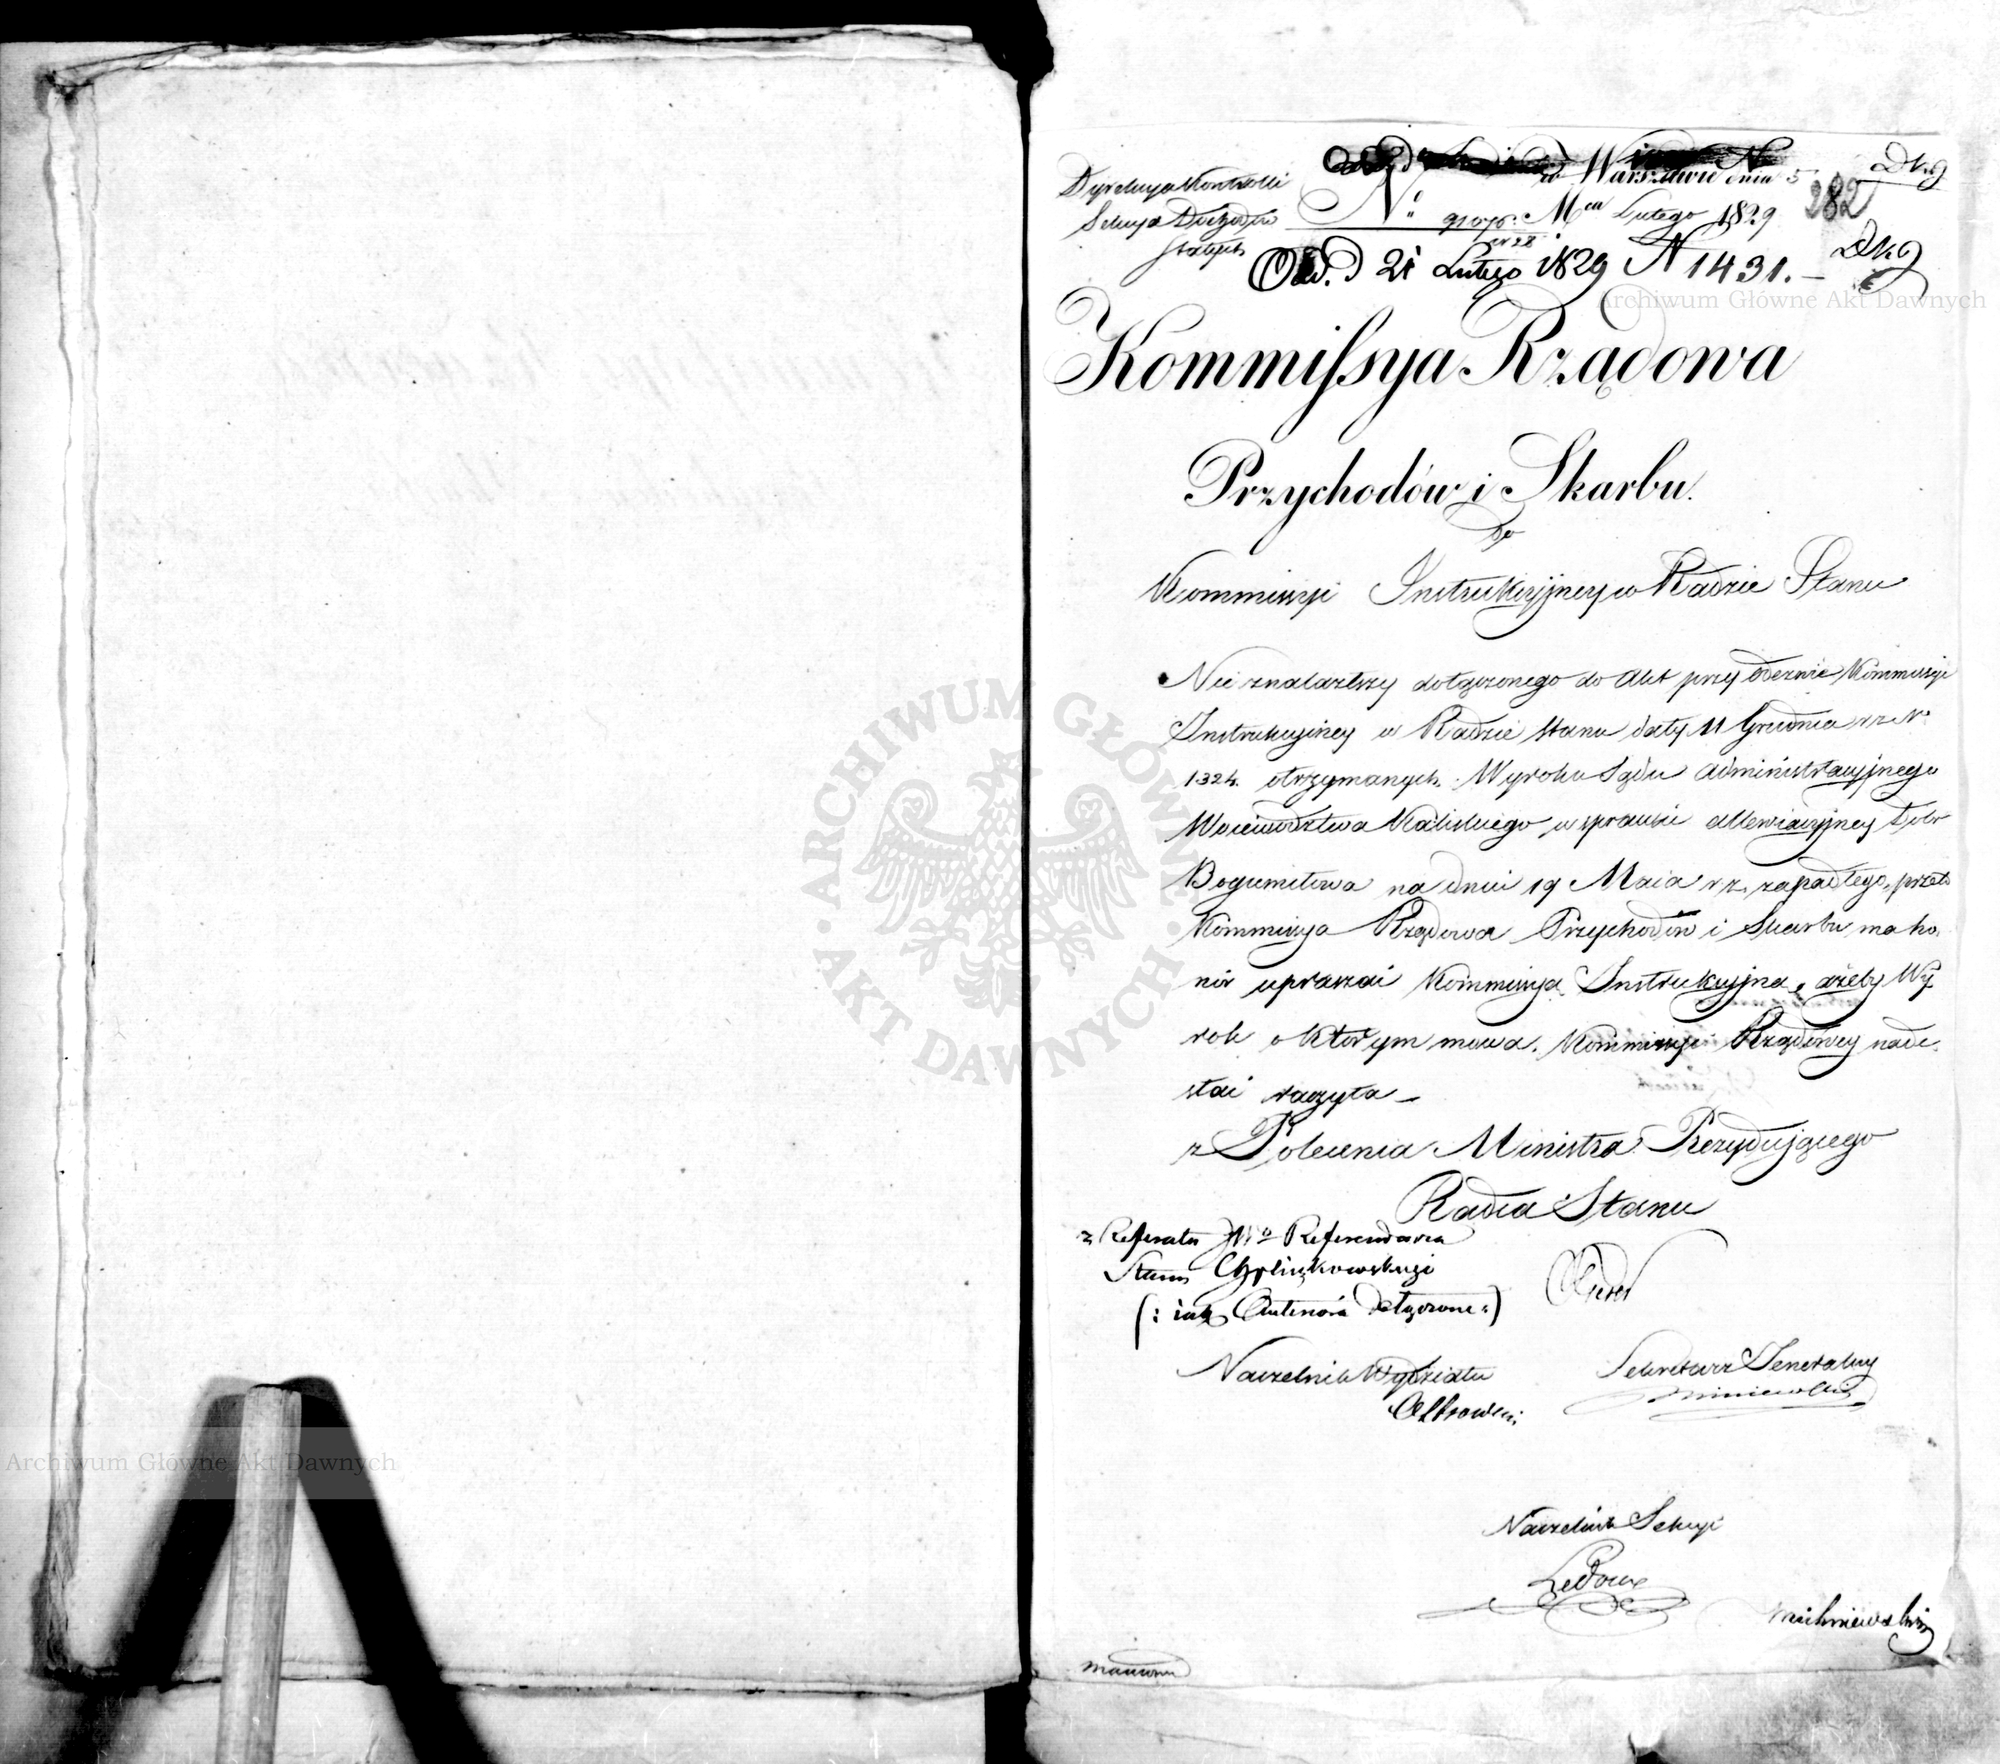 Dyrekcya Kontrolli
Sekcya Dochodów
stałych
w Warszawie dnia 5
No 91076. Mca Lutego 1829
282
Dkg
Od. d 21 Lutego 1829 N 1431. –
Dkg
Kommissya Rządowa
Przychodów i Skarbu.
Do
Kommissyi Instrukcyjney w Radzie Stanu
Nie znalazłszy dołączonego do Akt przy odezwie Kommissyi
Instrukcyiney w Radzie Stanu daty 11 Grudnia r z No
1324. otrzymanych. Wyroku Sądu Administracyjnego
Woiewództwa Kaliskiego w sprawie allewiacyjney Dobr
Bogumiłowa na dniu 19 Maia r z. zapadłego, przeto
Kommissya Rządowa Przychodów i Skarbu ma ho-
nor upraszać Kommissya Instrukcyjna, ażeby Wy-
rok o którym mowa. Kommissyi Rządowey nade-
słać raczyła –
z Polecenia Ministra Prezydującego
Radca Stanu
z Referatu JWo Referendarza
Stanu Chyliczkowskiego
(: iak Antenora dołączone :)
Naczelnik Wydziału
Sekretarz Jeneralny
Naczelnik Sekcyi
Michniewski
Archiwum Główne Akt Dawnych
Archiwum Główne Akt Dawnych
ARCHIWUM GŁÓWNE · AKT DAWNYCH ·